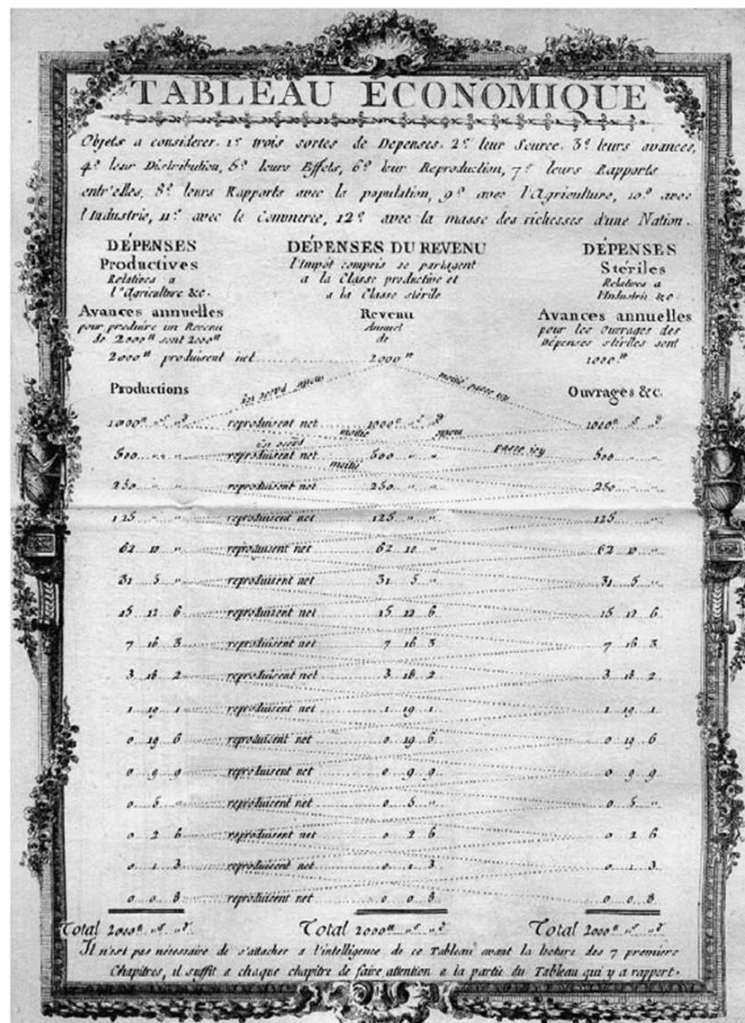 TABLEAU ECONOMIQUE
Objets a considerer. 1.º trois sortes de Depenses. 2.º leur Source. 3.º leurs avances,
4.º leur Distribution, 5.º leurs Effets, 6.º leur Reproduction, 7.º leurs Rapports
entr'elles, 8.º leurs Rapports avec la population, 9.º avec l'Agriculture, 10.º avec
l'Industrie, 11.º avec le Commerce, 12.º avec la masse des richesses d'une Nation.
DÉPENSES DÉPENSES DU REVENU DÉPENSES
Productives l'Impôt compris se partagent Stériles
Relatives a a la Classe productive et Relatives a
l'Agriculture &c. a la Classe stérile l'Industrie &c.
Avances annuelles Revenu Avances annuelles
pour produire un Revenu Annuel pour les Ouvrages des
de 2000ᵗᵗ sont 2000ᵗᵗ de Dépenses stériles sont
2000ᵗᵗ produisent net 2000ᵗᵗ 1000ᵗᵗ
Productions Ouvrages &c.
moitié passe icy
1000ᵗᵗ reproduisent net 1000ᵗᵗ 1000ᵗᵗ
moitié passe icy
500 reproduisent net 500 500
moitié
250 reproduisent net 250 250
125 reproduisent net 125 125
62 10 reproduisent net 62 10 62 10
31 5 reproduisent net 31 5 31 5
15 12 6 reproduisent net 15 12 6 15 12 6
7 16 3 reproduisent net 7 16 3 7 16 3
3 18 2 reproduisent net 3 18 2 3 18 2
1 19 1 reproduisent net 1 19 1 1 19 1
0 19 6 reproduisent net 0 19 6 0 19 6
0 9 9 reproduisent net 0 9 9 0 9 9
0 5 reproduisent net 0 5 0 5
0 2 6 reproduisent net 0 2 6 0 2 6
0 1 3 reproduisent net 0 1 3 0 1 3
0 0 8 reproduisent net 0 0 8 0 0 8
Total 2000ᵗᵗ Total 2000ᵗᵗ Total 2000ᵗᵗ
Il n'est pas nécessaire de s'attacher a l'intelligence de ce Tableau avant la lecture des 7 premiers
Chapitres, il suffit a chaque chapitre de faire attention a la partie du Tableau qui y a rapport.